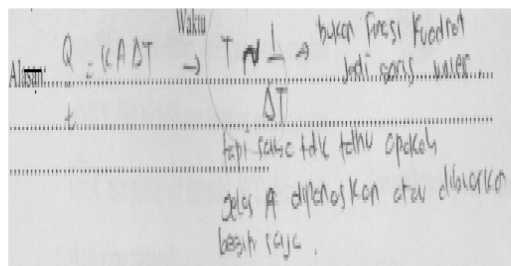 Waktu
Alasan: Q = k A ΔT → T ~ 1 → bukan fungsi kuadrat
t ΔT jadi garis linier
tapi saya tdk tahu apakah
gelas A dipanaskan atau dibiarkan
begitu saja.